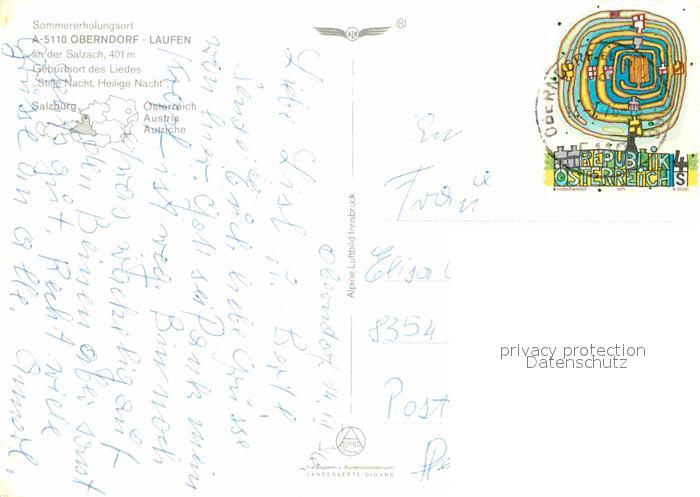 Sommererholungsort
A-5110 OBERNDORF - LAUFEN
an der Salzach, 401 m
Geburtsort des Liedes
„Stille Nacht, Heilige Nacht"
Salzburg
Österreich
Austria
Autriche
®
Alpine Luftbild Innsbruck
ALPINE
Freigegeben v. Bundesministerium f.
LANDESVERTEIDIGUNG
REPUBLIK
ÖSTERREICH
4
S
HUNDERTWASSER 1975
Oberndorf
Liebe Lisl u. Bertl
Sende Euch liebe Grüsse
von hier. Gott sei Dank mein
ist weg. Bin noch
etwas wackelig auf
den Beinen aber sonst
gut. Recht viele
Grüsse an alle.
Frau
8354
Post
privacy protection
Datenschutz